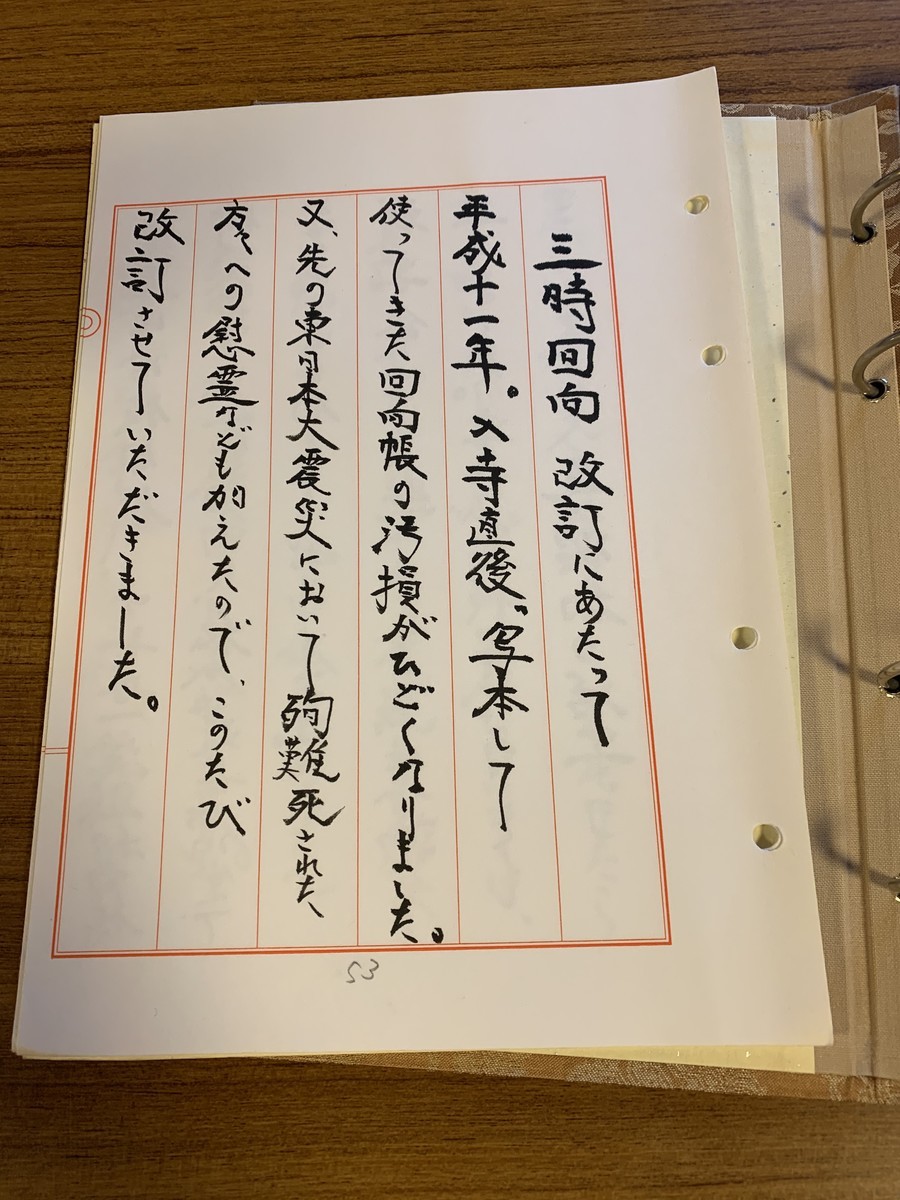 三時回向 改訂にあたって
平成十一年。入寺直後〝写本して
使ってきた回向帳の汚損がひどくなりました。
又、先の東日本大震災において殉難死された、
方々への慰霊なども加えたので、このたび
改訂させていただきました。
53